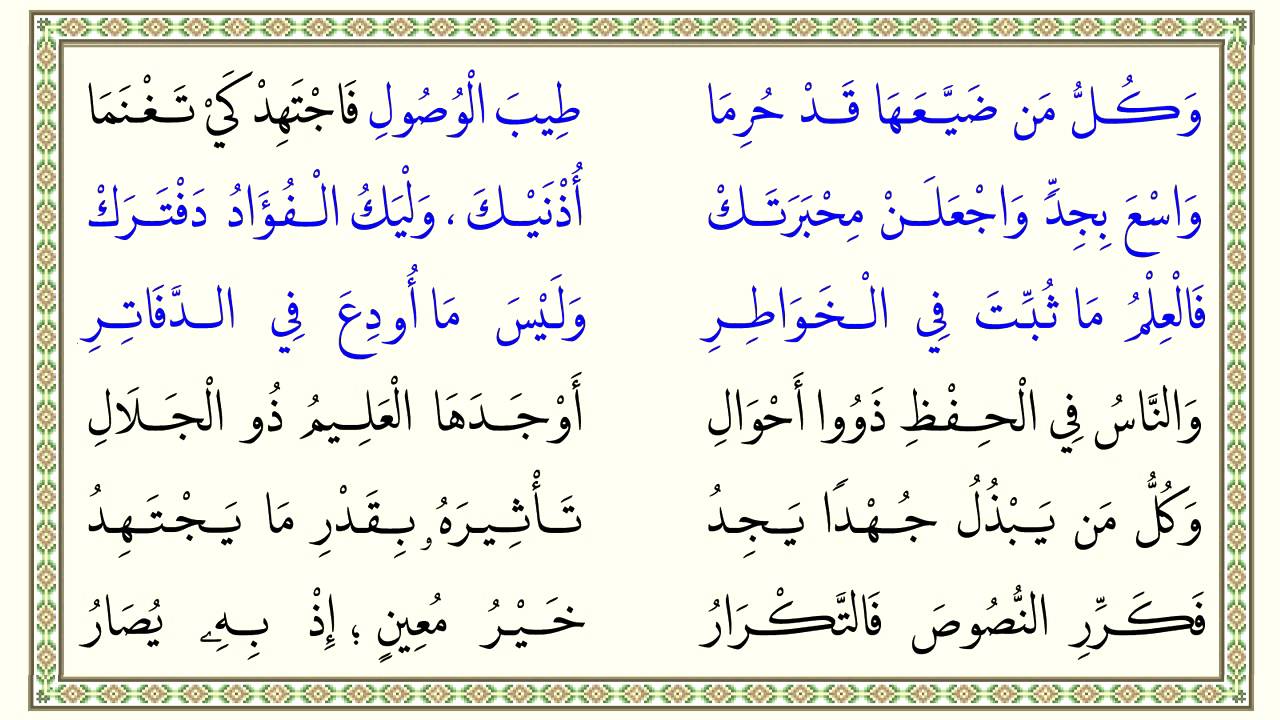 وَكُلُّ مَن ضَيَّعَهَا قَدْ حُرِمَا طِيبَ الْوُصُولِ فَاجْتَهِدْ كَيْ تَغْنَمَا
وَاسْعَ بِجِدٍّ وَاجْعَلَنْ مِحْبَرَتَكْ أُذْنَيْكَ ، وَلْيَكُ الْفُؤَادُ دَفْتَرَكْ
فَالْعِلْمُ مَا ثُبِّتَ فِي الْخَوَاطِرِ وَلَيْسَ مَا أُودِعَ فِي الدَّفَاتِرِ
وَالنَّاسُ فِي الْحِفْظِ ذَوُوا أَحْوَالِ أَوْجَدَهَا الْعَلِيمُ ذُو الْجَلَالِ
وَكُلُّ مَن يَبْذُلُ جُهْدًا يَجِدُ تَأْثِيرَهُۥ بِقَدْرِ مَا يَجْتَهِدُ
فَكَرِّرِ النُّصُوصَ فَالتَّكْرَارُ خَيْرُ مُعِينٍ ؛ إِذْ بِهِۦ يُصَارُ